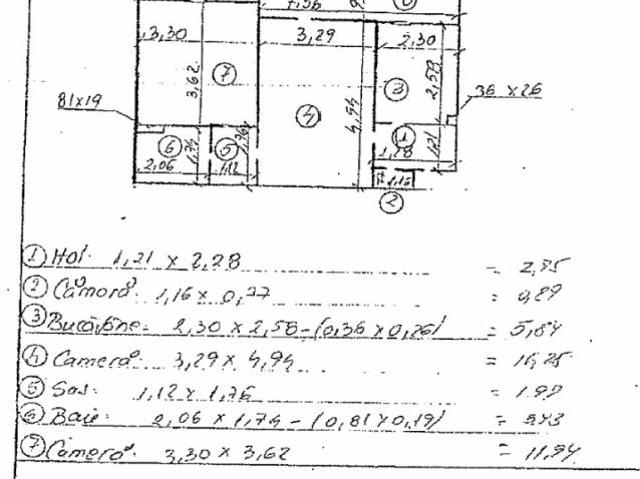 7,56
3,30
3,29
2,30
3,62
7
4
4,94
3
2,58
36 x 26
81x19
6
1,74
5
1,76
1
1,21
2,06
1,12
1,16
2
1 Hol. 1,21 x 2,28 =
2 Cămară. 1,16 x 0,77 =
3 Bucătărie = 2,30 x 2,58 - (0,36 x 0,26) = 5,84
4 Cameră. 3,29 x 4,94 = 16,25
5 Sas: 1,12 x 1,76 =
6 Baie: 2,06 x 1,74 - (0,81 x 0,19) =
7 Cameră. 3,30 x 3,62 = 11,94